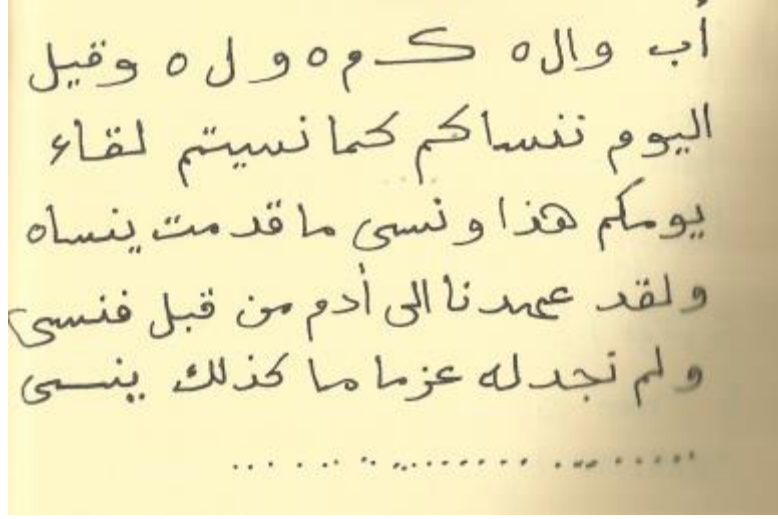 أب وال ه كم ه و ل ه وقيل
اليوم ننساكم كما نسيتم لقاء
يومكم هذا ونسى ما قدمت ينساه
ولقد عهدنا الى أدم من قبل فنسى
ولم نجد له عزما ما كذلك ينسى
..............................